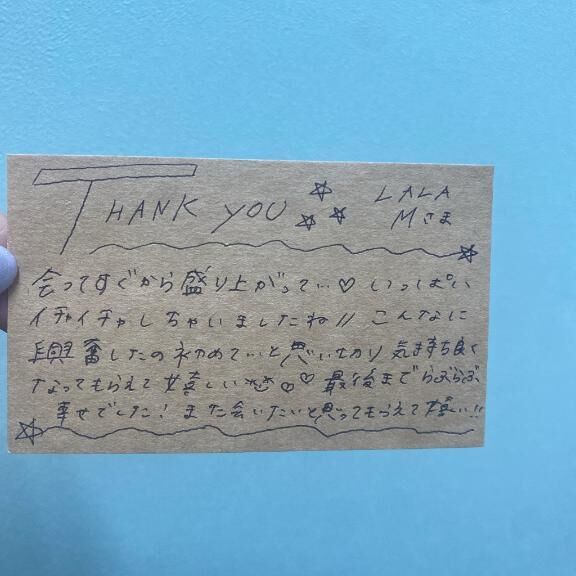 THANK YOU
LALA
Mさま
会ってすぐから盛り上がってい♡ いっぱい
イチャイチャしちゃいましたね!! こんなに
興奮したの初めて 気持ち良く
なってもらえて嬉しい ♡♡ 最後までらぶらぶ
幸せでした! また会いたいと思ってもらえて嬉い!!